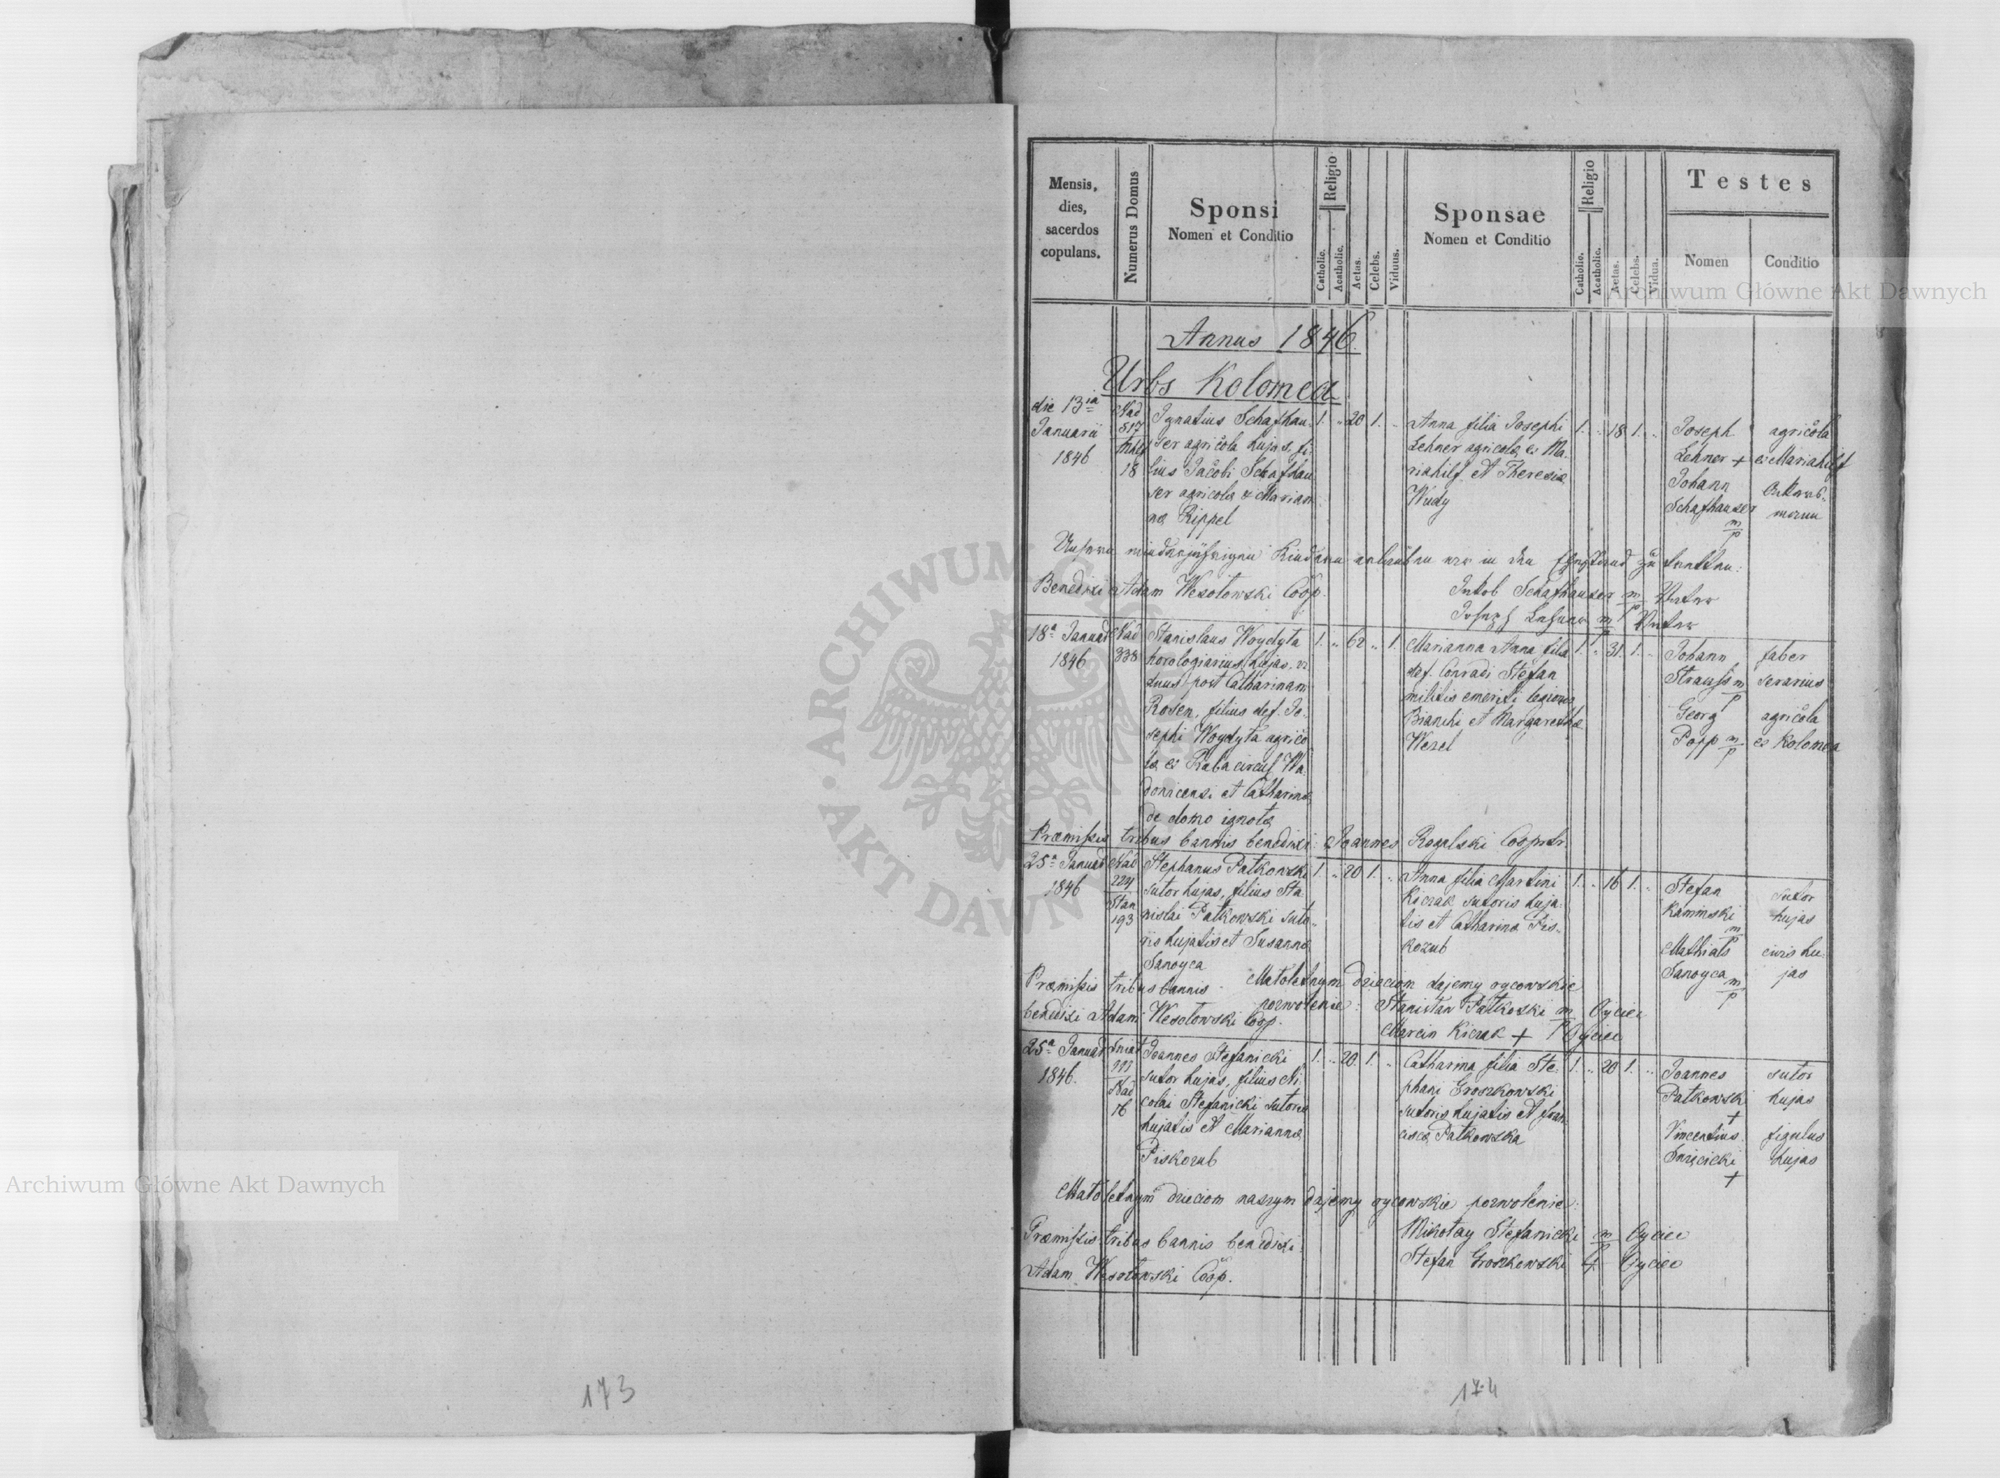 Mensis, dies, sacerdos copulans.
Numerus Domus
Sponsi
Nomen et Conditio
Religio
Catholic.
Acatholic.
Aetas.
Celebs.
Viduus.
Sponsae
Nomen et Conditio
Religio
Catholic.
Acatholic.
Aetas.
Celebs.
Vidua.
Testes
Nomen
Conditio
Annus 1846.
Urbs Kolomea
die 13ia
Januarii
1846
Nad
817
18
Ignatius Schafhau
ser agricola hujas, fi
lius Jacobi Schafhau
ser agricola & Marian
na Rippel
1. „ 20 1. „
Anna filia Josephi
Lehner agricola ex Ma
riahilf et Theresia
Wudy
1. „ 18 1. „
Joseph
Lehner +
Johann
Schafhauser
m/p
agricola
ex Mariahilf
Unsern minderjährigen Kindern erlauben wir in den Ehestand zu tretten:
Benedixi Adam Wesołowski Coop.
Jakob Schafhauser m/p Vater
Joseph Lehner m/p Vater
18a Januar
1846
Nad
338
Stanislaus Woydyta
horologiarius hujas, vi
duus post Catharinam
Rosen, filius def. Jo
sephi Woydyta agrico
la ex Raba circul Wa
dovicensi et Catharina
de domo ignota
1. „ 62 „ 1.
Marianna Anna filia
def. Conradi Stefan
militis emeriti legionis
Bianchi et Margaretha
Wezel
1. „ 31. 1. „
Johann
Strauss m/p
Georg
Popp m/p
faber
serarius
agricola
ex Kolomea
Præmissis tribus bannis benedixi: Joannes Rogalski Cooprtr.
25a Januar
1846
Nad
224
Stan
193
Stephanus Patkowski
sutor hujas, filius Sta
nislai Patkowski suto
ris hujatis et Susanna
Sanoyca
1. „ 20 1. „
Anna filia Martini
Kiczak sutoris huja
tis et Catharina Pis
kozub
1. „ 16 1. „
Stefan
Kaminski
m/p
Mathias
Sanoyca m/p
sutor
hujas
civis hu
jas
Præmissis tribus bannis
benedixi Adam Wesołowski Coop.
Małoletnym dzieciom dajemy oycowskie
pozwolenie: Stanisław Patkoski m/p Oyciec
Marcin Kiczak + Oyciec
25a Januar
1846.
Sniat
111
Nad
16
Joannes Stefanicki
sutor hujas, filius Ni
colai Stefanicki sutoris
hujatis et Marianna
Piskozub
1. „ 20 1. „
Catharina filia Ste
phani Groszkowski
sutoris hujatis et Fran
cisca Patkowska
1. „ 20 1. „
Joannes
Patkowski
+
Vincentius
+
sutor
hujas
figulus
hujas
Małoletnym dzieciom naszym dajemy oycowskie pozwolenie:
Præmissis tribus bannis benedixi
Mikołay Stefanicki m/p Oyciec
Adam Wesołowski Coop.
Stefan Groszkowski + Oyciec
173
174
Archiwum Główne Akt Dawnych
Archiwum Główne Akt Dawnych
ARCHIWUM GŁÓWNE AKT DAWNYCH